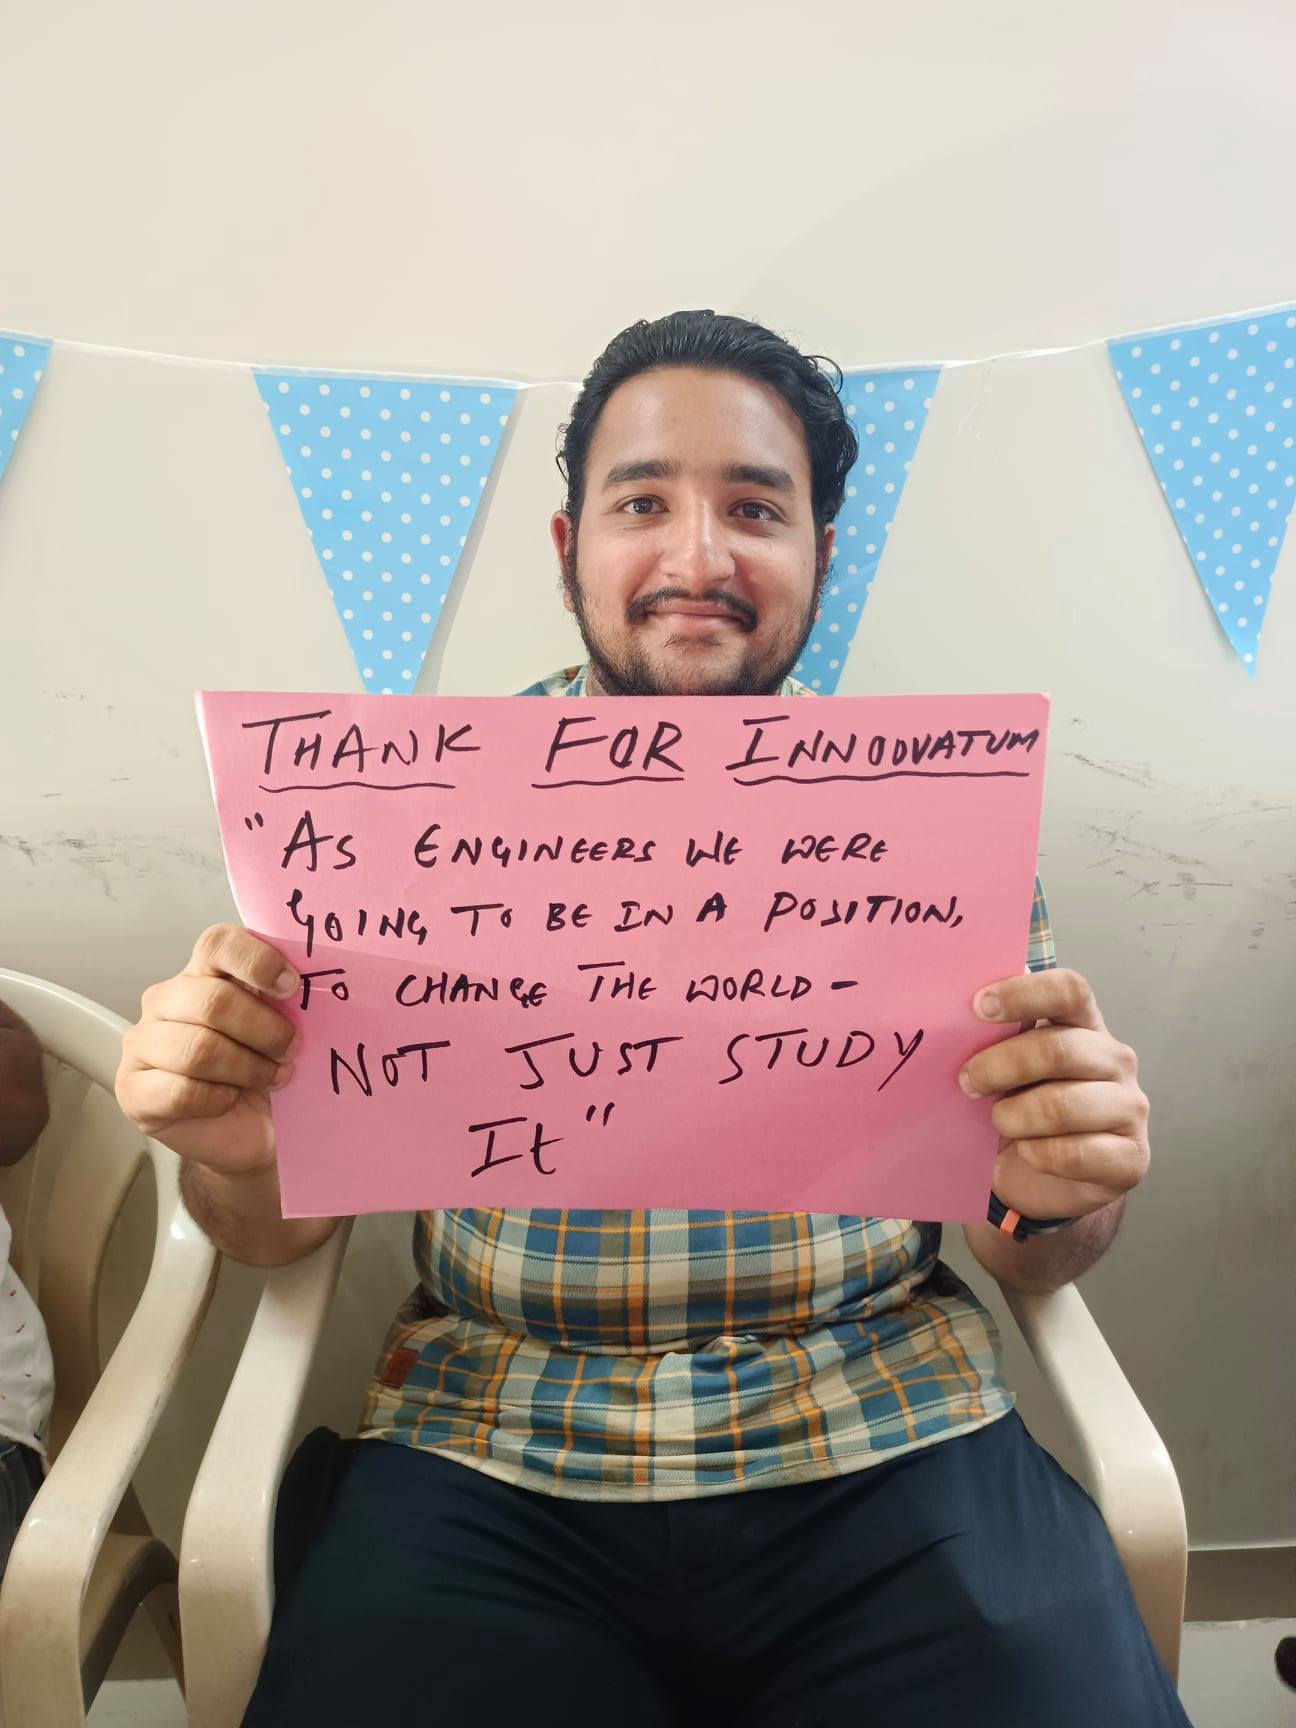 THANK FOR INNOOVATUM
"AS ENGINEERS WE WERE
GOING TO BE IN A POSITION,
TO CHANGE THE WORLD -
NOT JUST STUDY
It"